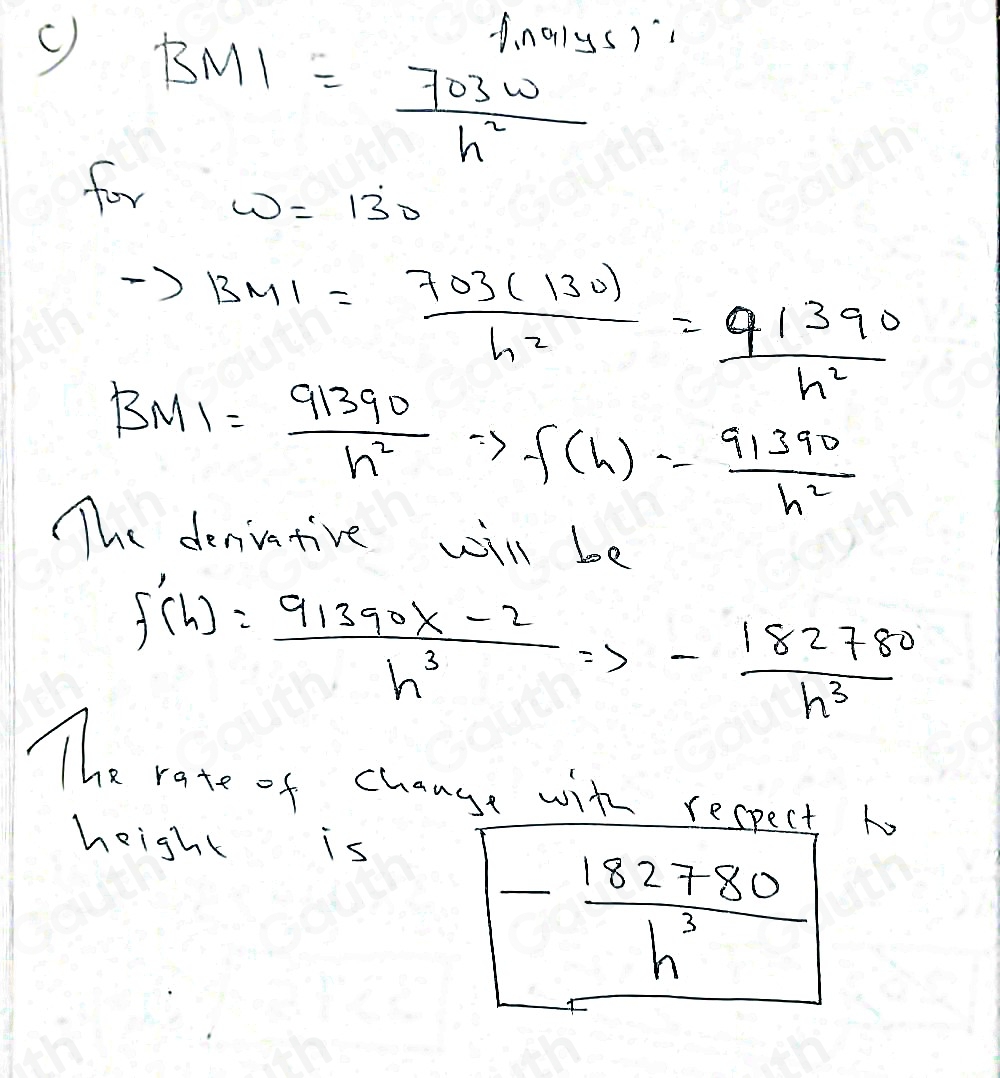 c) Analysis:
BMI = 703w / h²
for w = 130
-> BMI = 703(130) / h² = 91390 / h²
BMI = 91390 / h² => f(h) = 91390 / h²
The derivative will be
f'(h) = 91390 x -2 / h³ => - 182780 / h³
The rate of change with respect to
height is - 182780 / h³